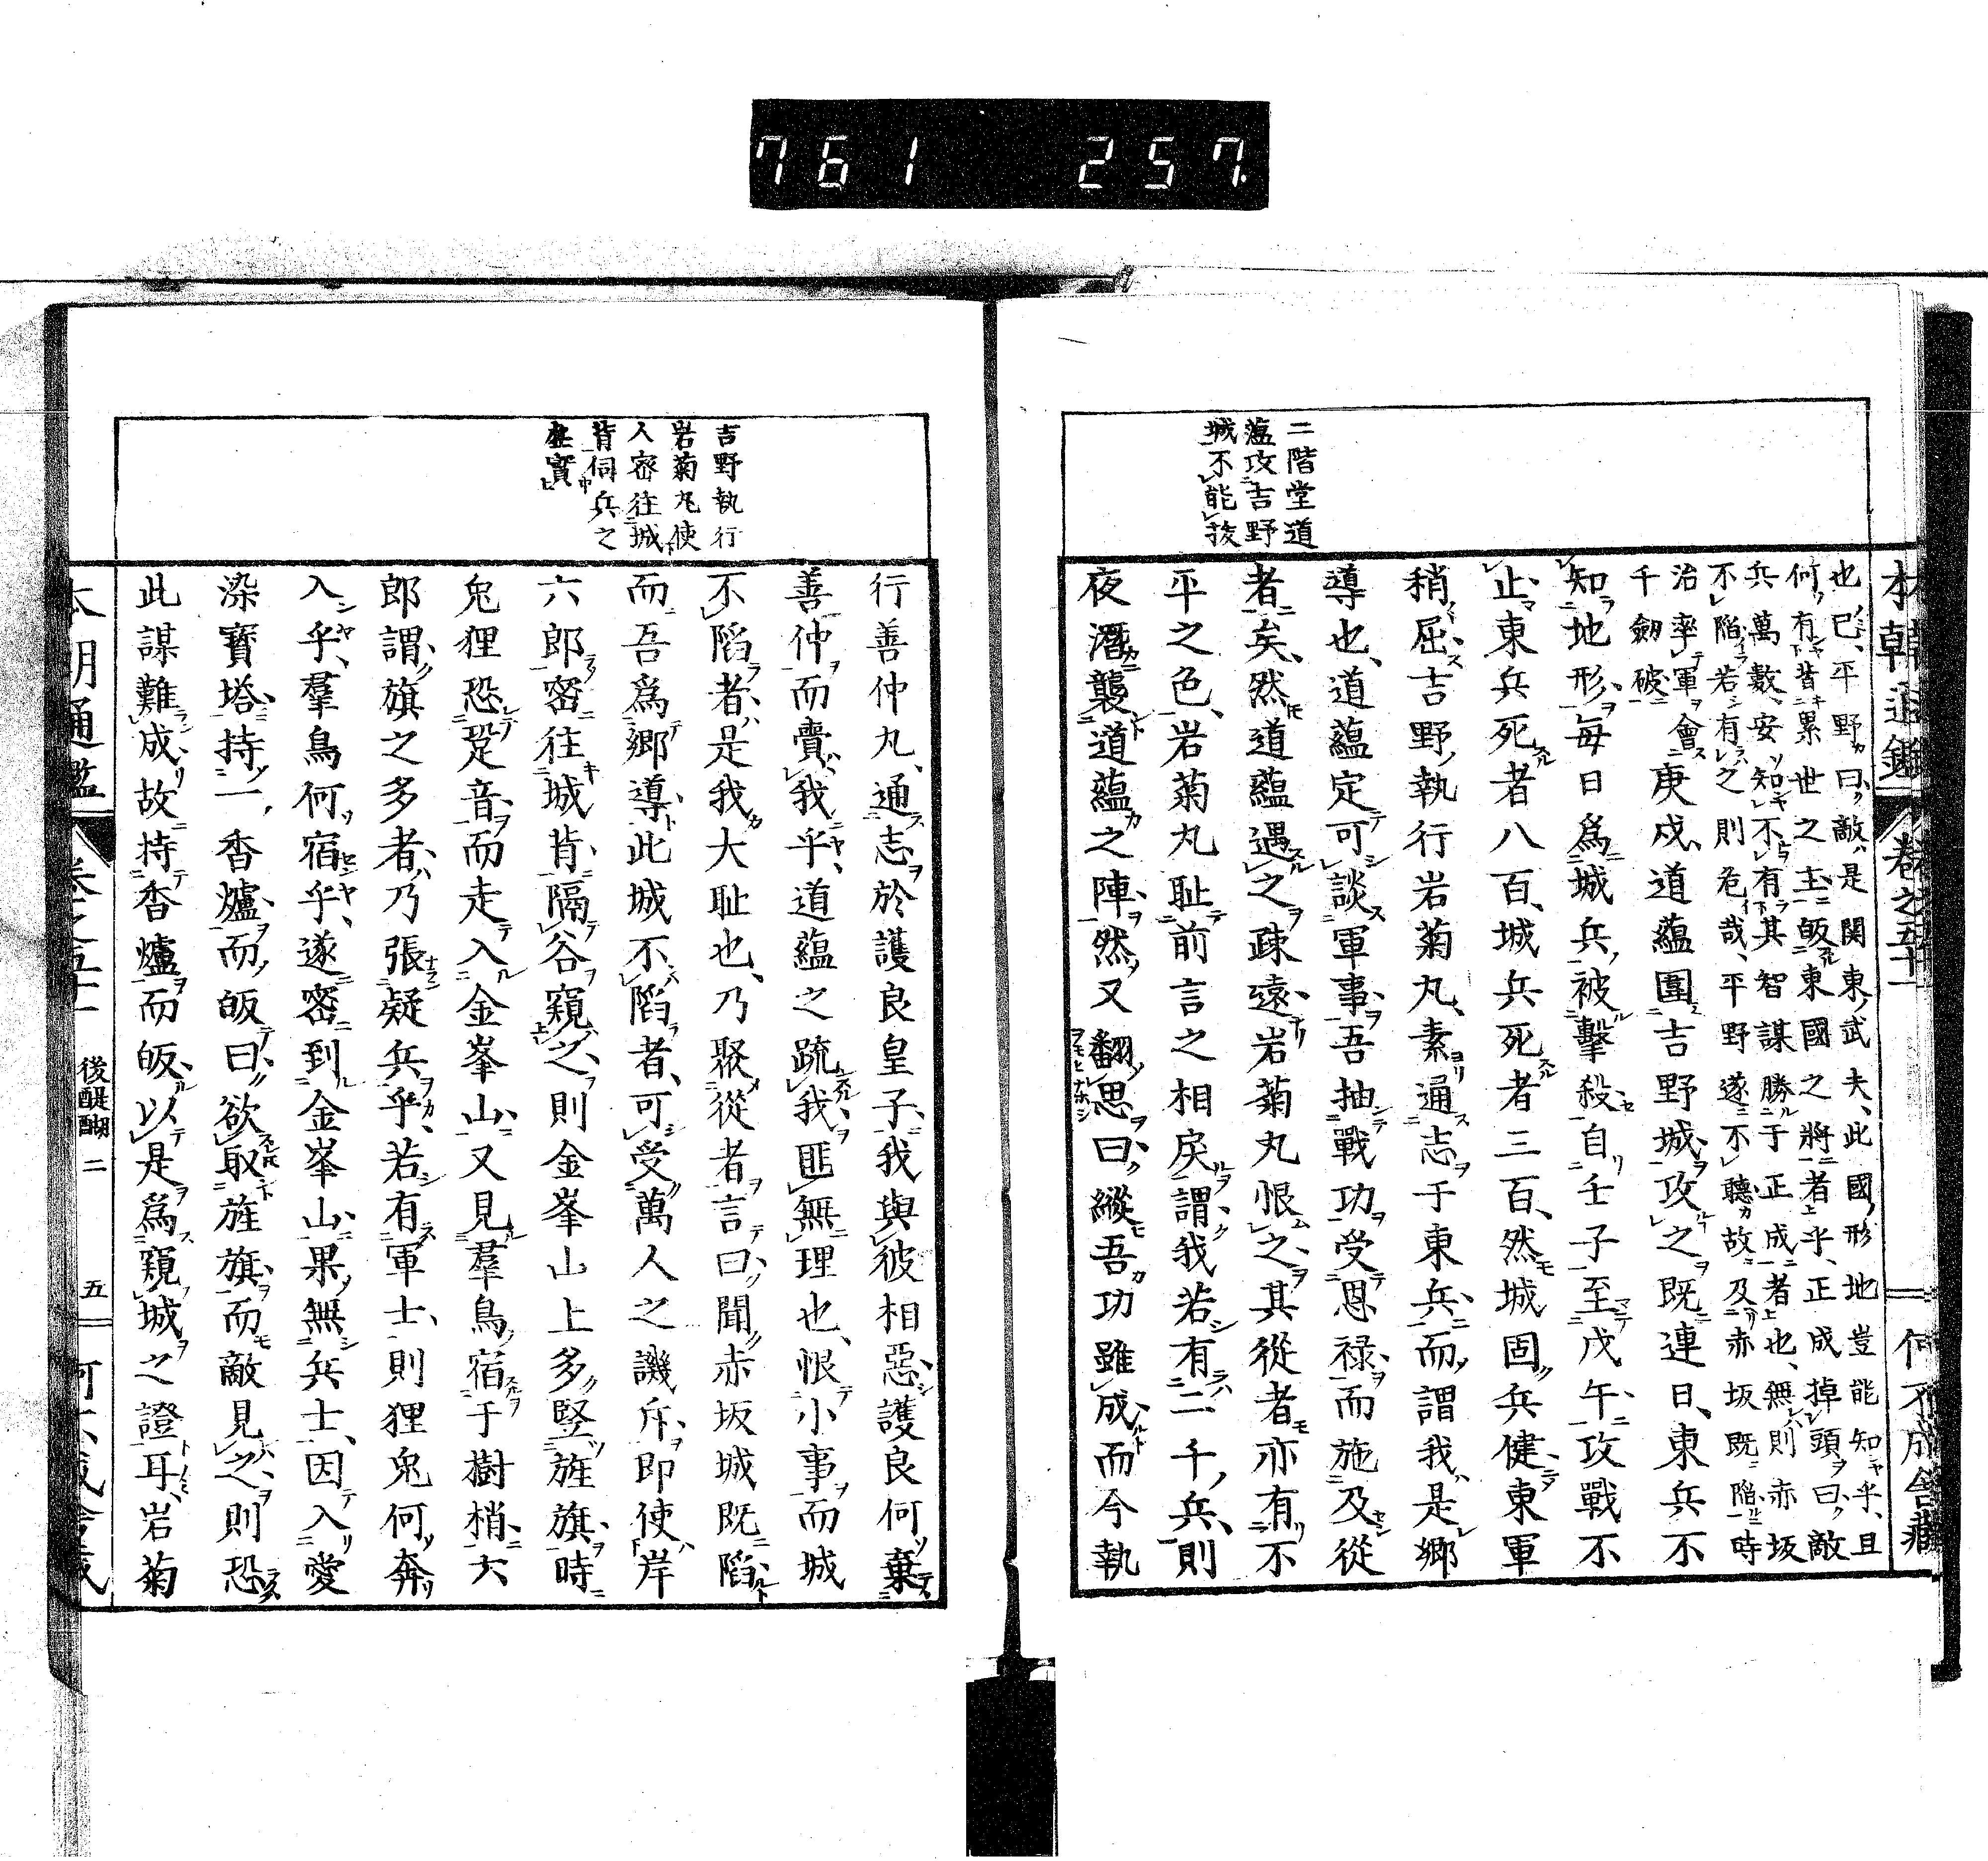 761 257
二階堂道
蘊攻吉野
城不能抜
也已、平野曰、敵是関東武夫、此國形地豈能知乎、且
何有昔累世之主皈東國之將者乎、正成掉頭曰、敵
兵萬數、安知不有其智謀勝于正成者也、無則赤坂
不陥若有之則危哉、平野遂不聽故及赤坂既陥時
治率軍會
千劔破
庚戍、道蘊圍吉野城攻之既連日、東兵不
知地形毎日爲城兵被擊殺自壬子至戊午攻戰不
止東兵死者八百、城兵死者三百、然城固兵健東軍
稍屈吉野執行岩菊丸、素通志于東兵而謂我是郷
導也、道蘊定可談軍事吾抽戰功受恩禄而施及從
者矣、然道蘊遇之疎遠岩菊丸恨之其從者亦有不
平之色、岩菊丸耻前言之相戾謂我若有二千兵、則
夜潛襲道蘊之陣然又翻思曰縱吾功雖成而今執
吉野執行
岩菊丸使
人密往城
背伺兵之
虚實
行善仲丸、通志於護良皇子我與彼相惡護良何棄
善仲而賣我乎、道蘊之疏我匪無理也、恨小事而城
不陷者是我大耻也、乃聚從者言曰聞赤坂城既陷
而吾爲郷導此城不陷者、可受萬人之譏斥即使岸
六郎密往城背隔谷窺之則金峯山上多竪旌旗時
兔狸恐跫音而走入金峯山又見羣鳥宿于樹梢六
郎謂旗之多者乃張疑兵乎、若有軍士、則狸兔何奔
入乎、羣鳥何宿乎、遂密到金峯山果無兵士、因入愛
染寶塔持一香爐而皈曰欲取旌旗而敵見之則恐
此謀難成故持香爐而皈以是爲窺城之證耳、岩菊
本朝通鑑 卷之五十一 後醍醐二 五